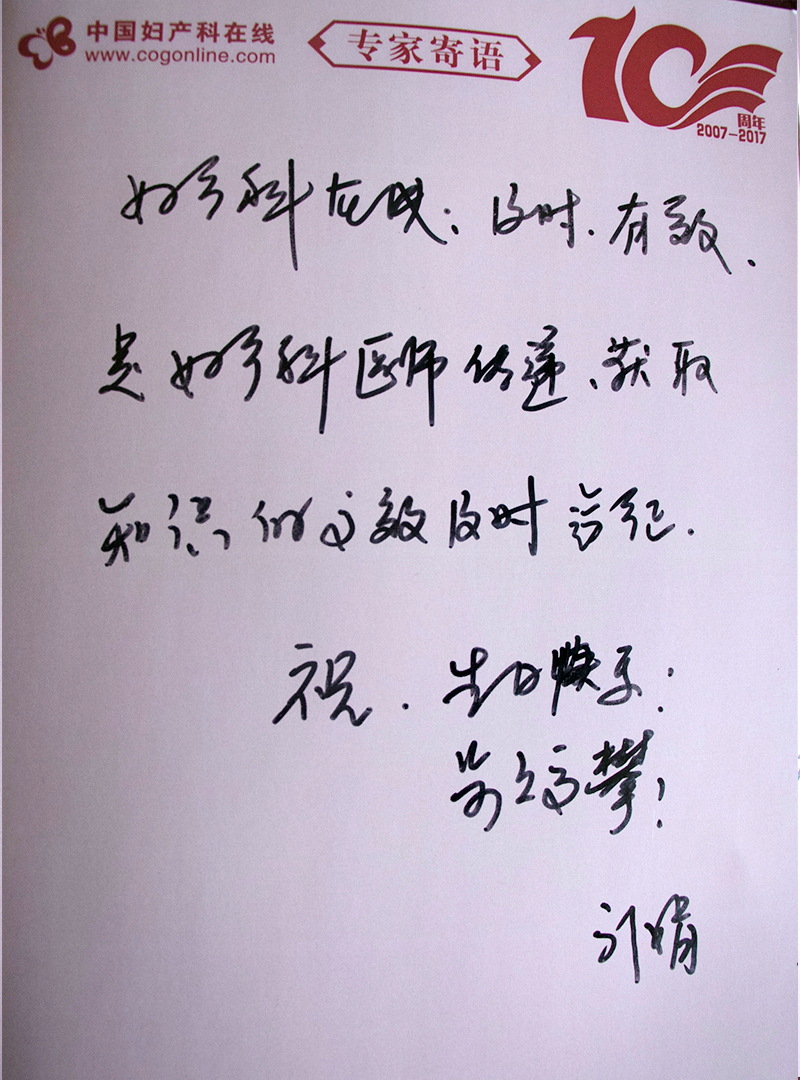 中国妇产科在线
www.cogonline.com
专家寄语
10
周年
2007-2017
妇产科在线:及时.有效.
是妇产科医师传递、获取
知识的高效及时
祝.生日快乐!
高攀!
娟